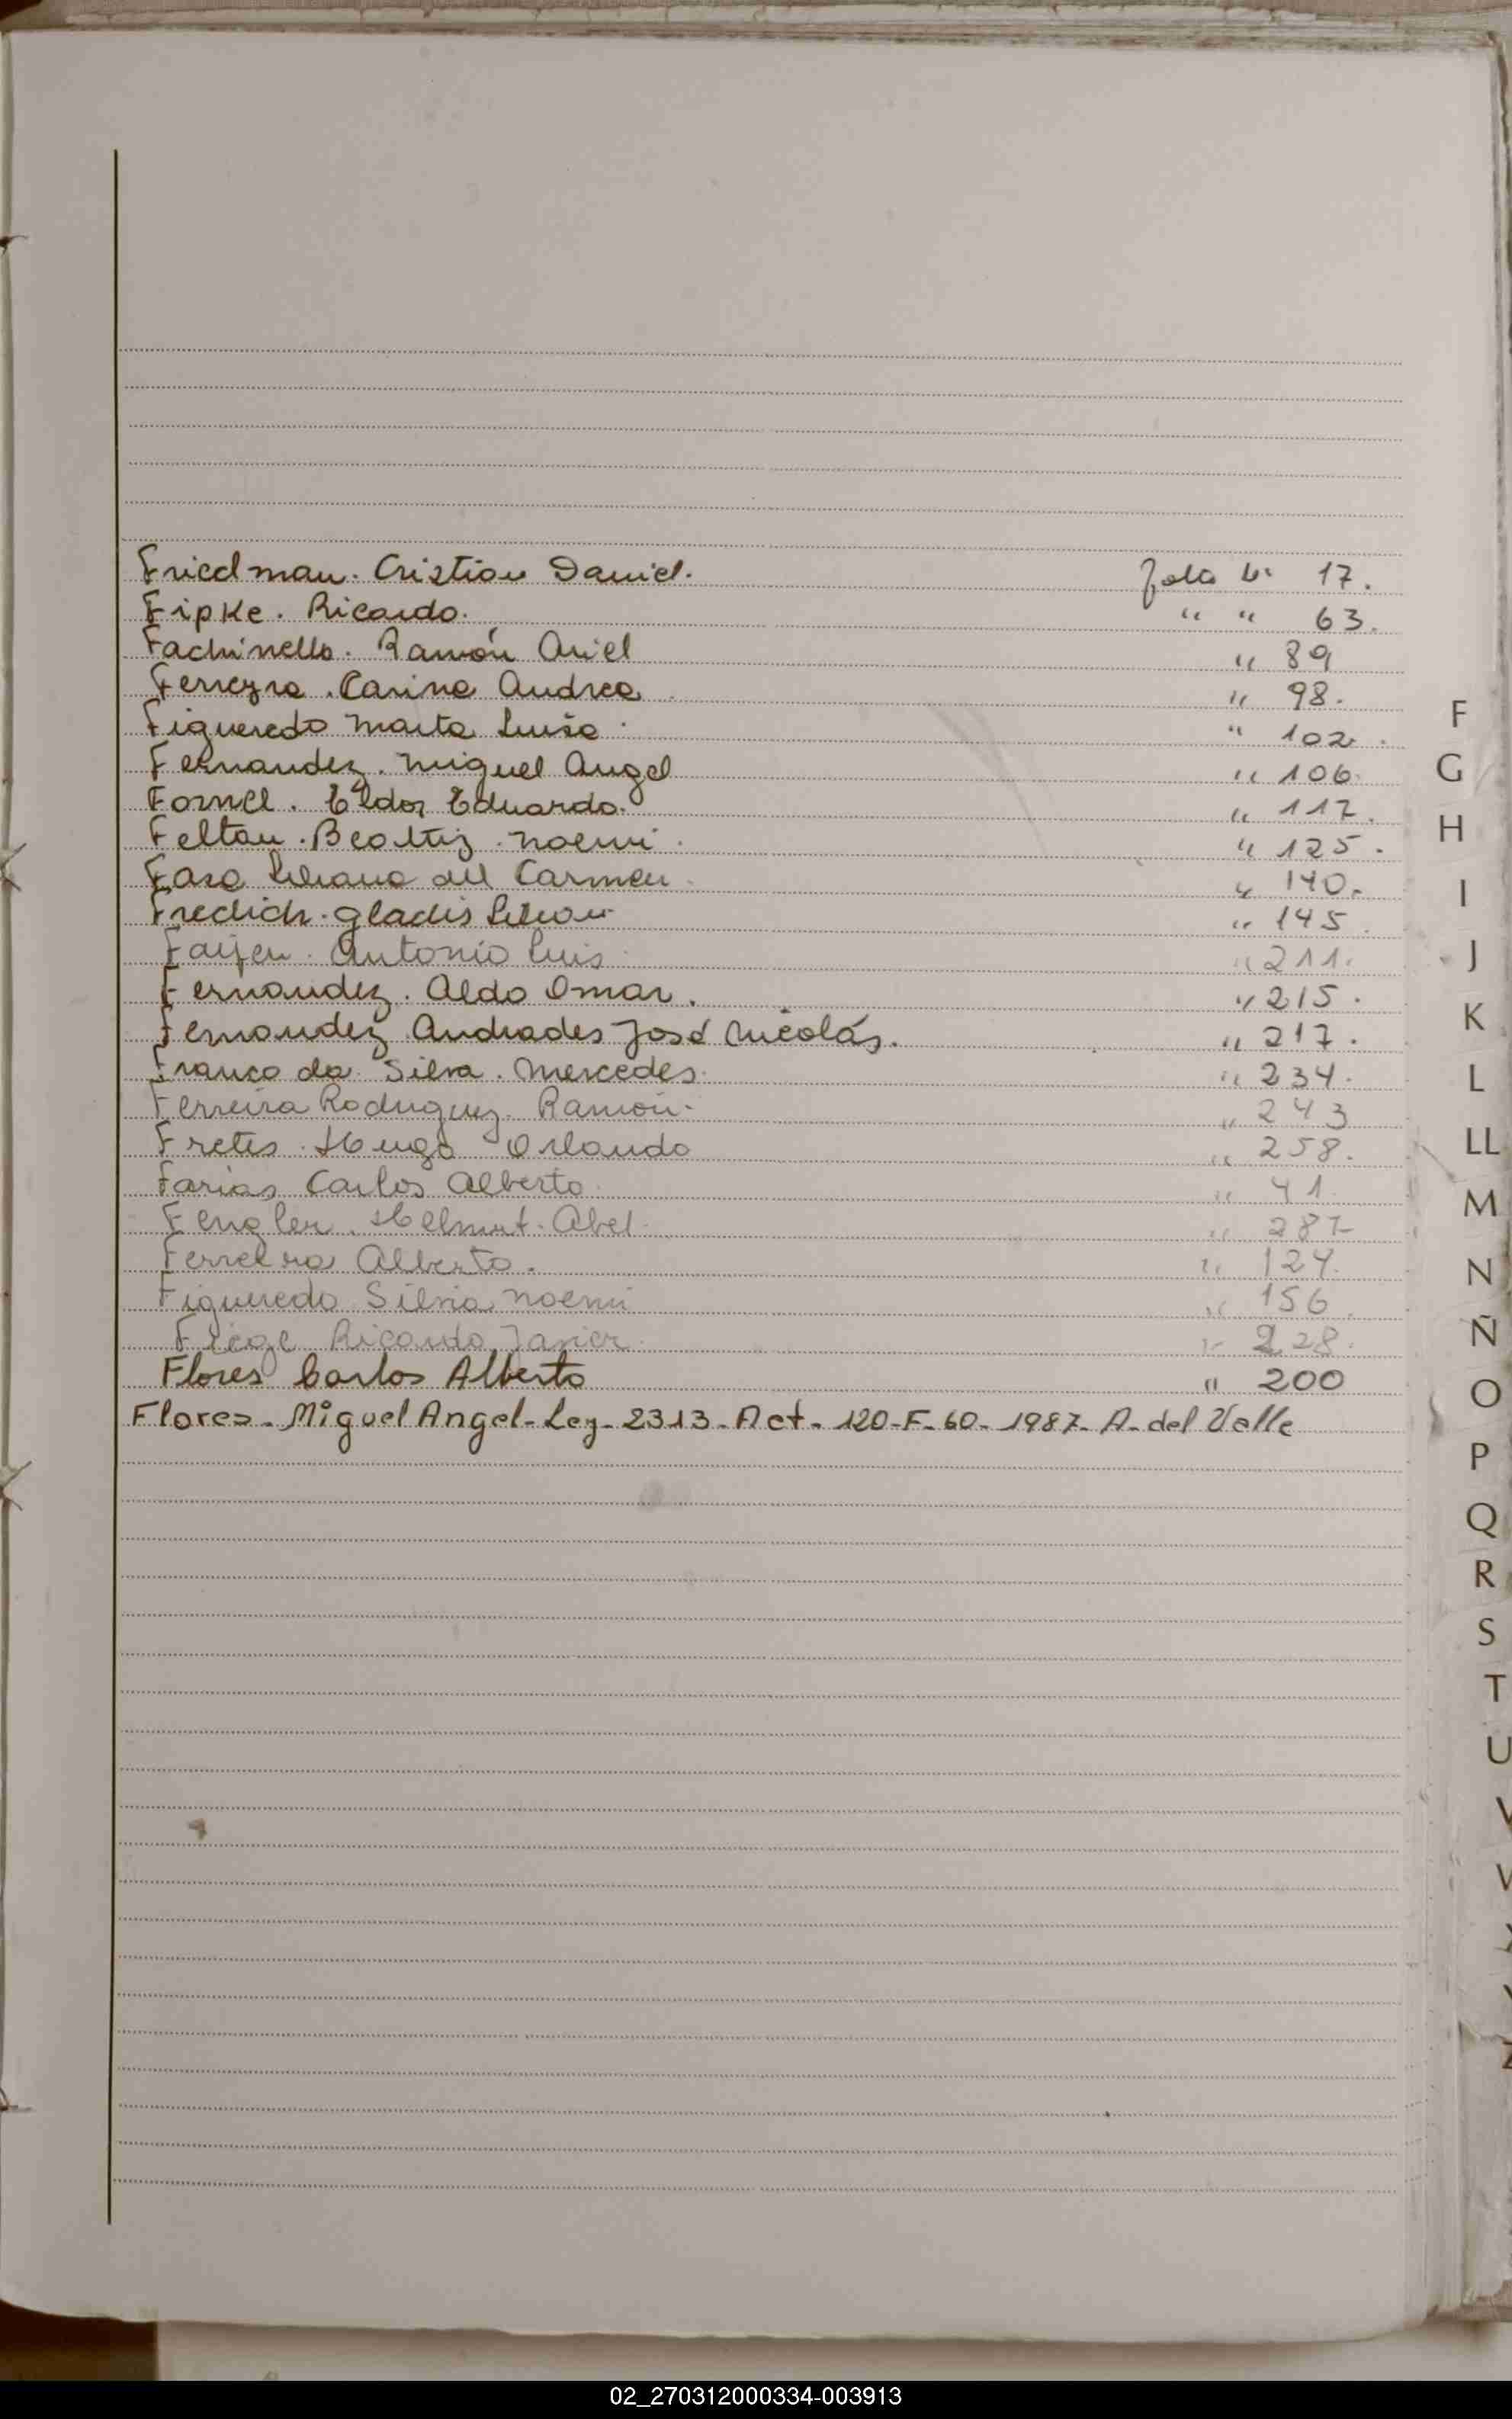 Friedman. Cristian Daniel. Folio Nº 17.
Fipke. Ricardo. " " 63.
Fachinello. Ramón Ariel " 89
Ferreyra. Carina Andrea " 98.
Figueredo Marta Luisa. " 102.
Fernandez. Miguel Angel " 106.
Fornel. Eldor Eduardo. " 117.
Feltan. Beatriz. Noemi. " 125.
Liliana del Carmen. " 140.
Fredich. Gladis Lilian. " 145.
Antonio Luis. " 211.
Fernandez. Aldo Omar. " 215.
Fernandez Andrades José Nicolás. " 217.
Franco da Silva. Mercedes. " 234.
Ferreira Rodriguez. Ramón. " 243
Fretes. Hugo Orlando " 258.
Farias Carlos Alberto. " 41.
Fengler. Helmut. Abel. " 287
Ferreira Alberto. " 124.
Figueredo Silvia Noemi " 156.
Ricardo Javier. " 228.
Flores Carlos Alberto " 200
Flores. Miguel Angel-Ley-2313-Act. 120-F-60-1987-A-del Valle
F
G
H
I
J
K
L
LL
M
N
Ñ
O
P
Q
R
S
T
U
V
Z
02_270312000334-003913